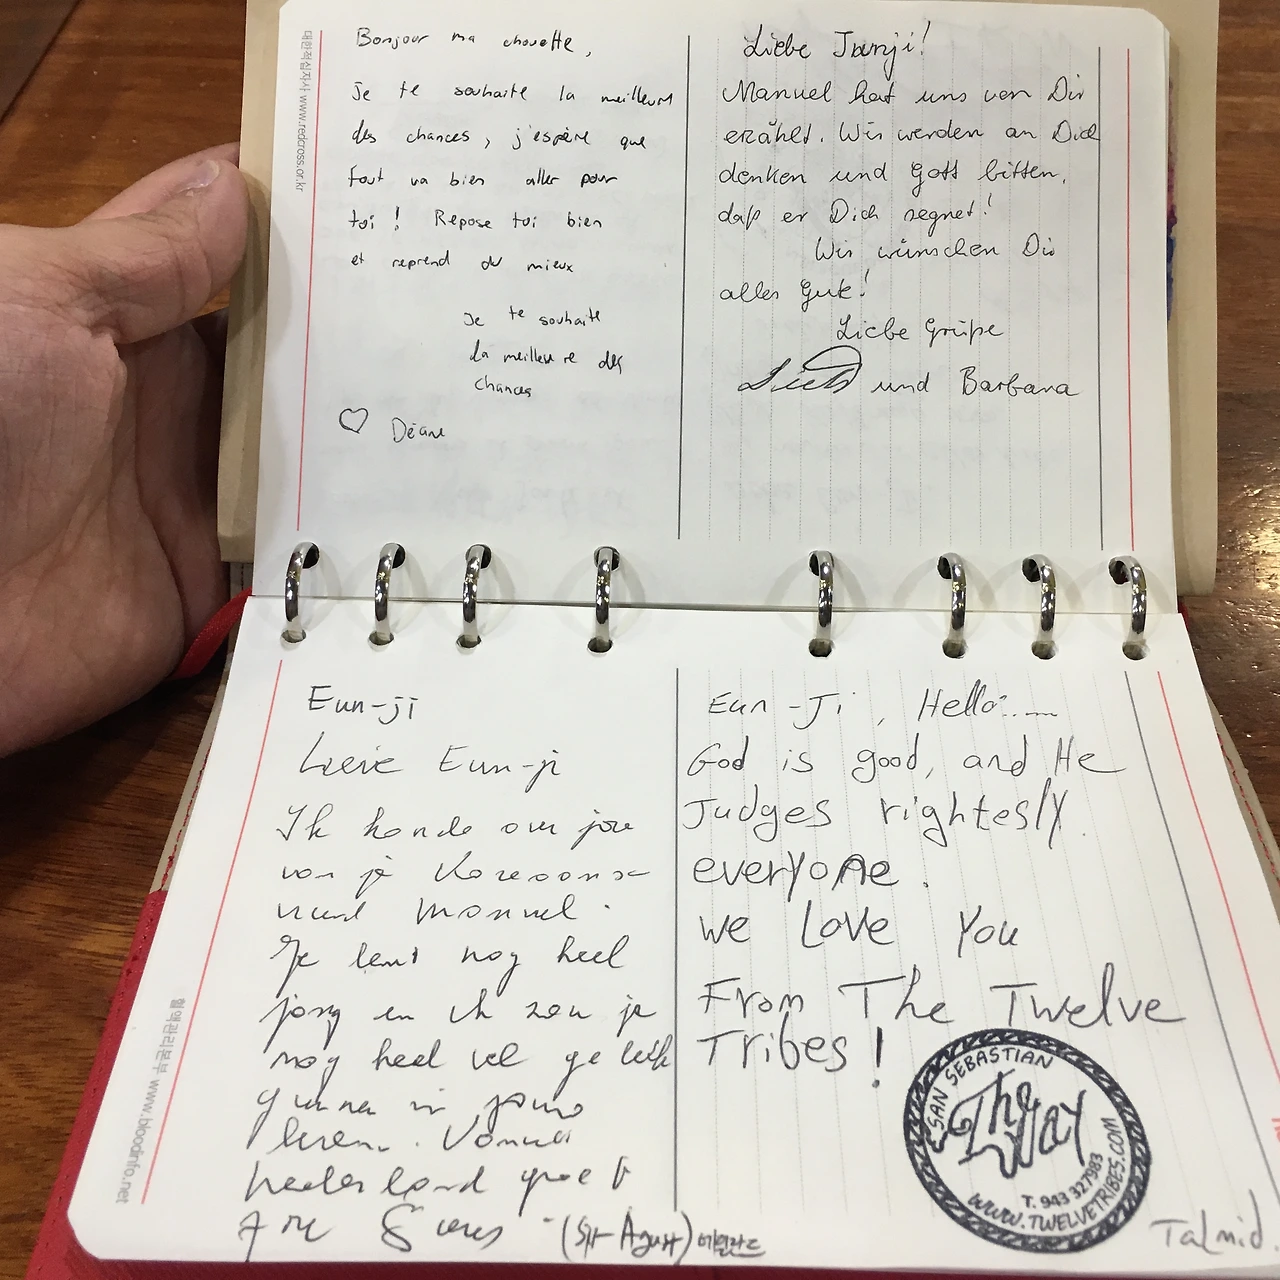 대한적십자사 www.redcross.or.kr
Bonjour ma chouette,
Je te souhaite la meilleurs
des chances, j'espère que
tout va bien aller pour
toi ! Repose toi bien
et reprend du mieux
Je te souhaite
la meilleure des
chances
♡ Déane
Liebe Junji!
Manuel hat uns von Dir
erzählt. Wir werden an Dich
denken und Gott bitten,
daß er Dich segnet!
Wir wünschen Dir
alles Gute!
Liebe Grüße
und Barbara
Eun-ji
Lieve Eun-ji
Ik hoorde over jou
van je Koreaanse
Manuel.
Je bent nog heel
jong en ik zou je
nog heel vel geluk
in jouw
leven. Vanuit
Nederland groet
(St-Agust) 네덜란드
혈액관리본부 www.bloodinfo.net
Eun-Ji, Hello......
God is good, and He
Judges rightesly.
everyone.
we Love You
From The Twelve
Tribes!
SAN SEBASTIAN
The Way
T. 943 327983
WWW.TWELVETRIBES.COM
Talmid.